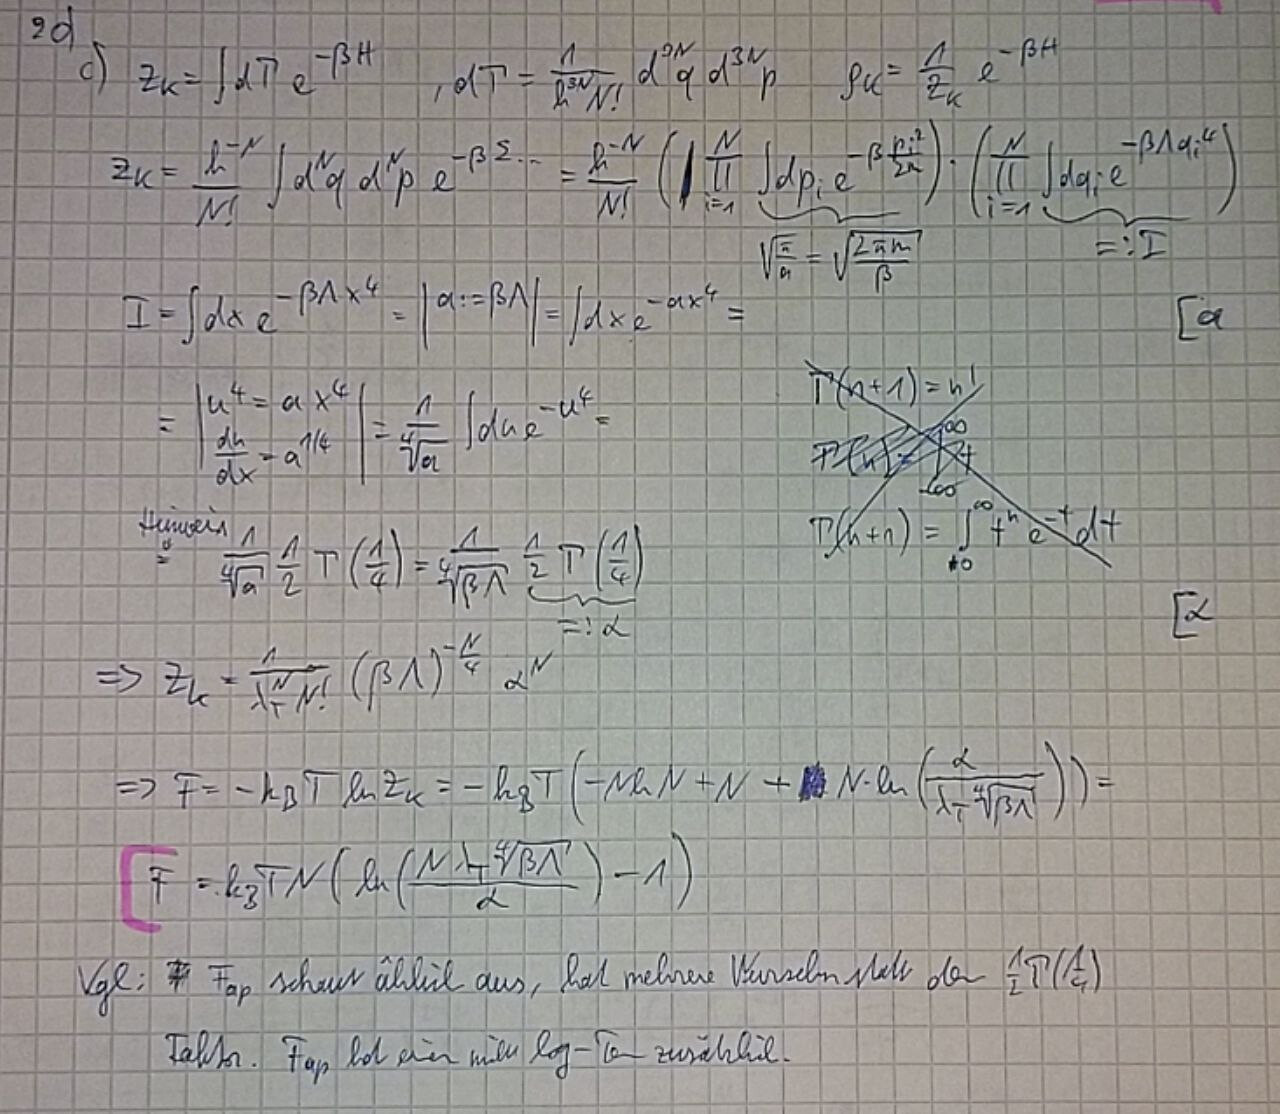 2d
c) Z_K = ∫ dΓ e^{-βH} , dΓ = \frac{1}{h^{3N} N!} d^{3N}q d^{3N}p ρ_K = \frac{1}{Z_K} e^{-βH}
Z_K = \frac{h^{-N}}{N!} ∫ d^N q d^N p e^{-β Σ...} = \frac{h^{-N}}{N!} ( ∏_{i=1}^{N} ∫ dp_i e^{-β \frac{p_i^2}{2m}} ) · ( ∏_{i=1}^{N} ∫ dq_i e^{-βΛq_i^4} )
\sqrt{\frac{π}{a}} = \sqrt{\frac{2πm}{β}} =: I
I = ∫ dx e^{-βΛx^4} = | a := βΛ | = ∫ dx e^{-ax^4} = [a
= | u^4 = a x^4 \frac{du}{dx} = a^{1/4} | = \frac{1}{\sqrt[4]{a}} ∫ du e^{-u^4} =
Γ(n+1) = n!
Γ(n) =
Γ(n+1) = ∫_0^∞ t^n e^{-t} dt
Hinweis
= \frac{1}{\sqrt[4]{a}} \frac{1}{2} Γ(\frac{1}{4}) = \frac{1}{\sqrt[4]{βΛ}} \frac{1}{2} Γ(\frac{1}{4})
=: α [α
=> Z_K = \frac{1}{λ_T^N N!} (βΛ)^{-\frac{N}{4}} α^N
=> F = -k_B T ln Z_K = -k_B T ( -N ln N + N + N · ln ( \frac{α}{λ_T \sqrt[4]{βΛ}} ) ) =
[F = k_B T N ( ln ( \frac{N λ_T \sqrt[4]{βΛ}}{α} ) - 1 )
Vgl: F_{ap} schaut ählich aus, hat mehrere Wurzeln statt den \frac{1}{2} Γ(\frac{1}{4})
Faktor. F_{ap} hat einen log-Term zusätzlich.